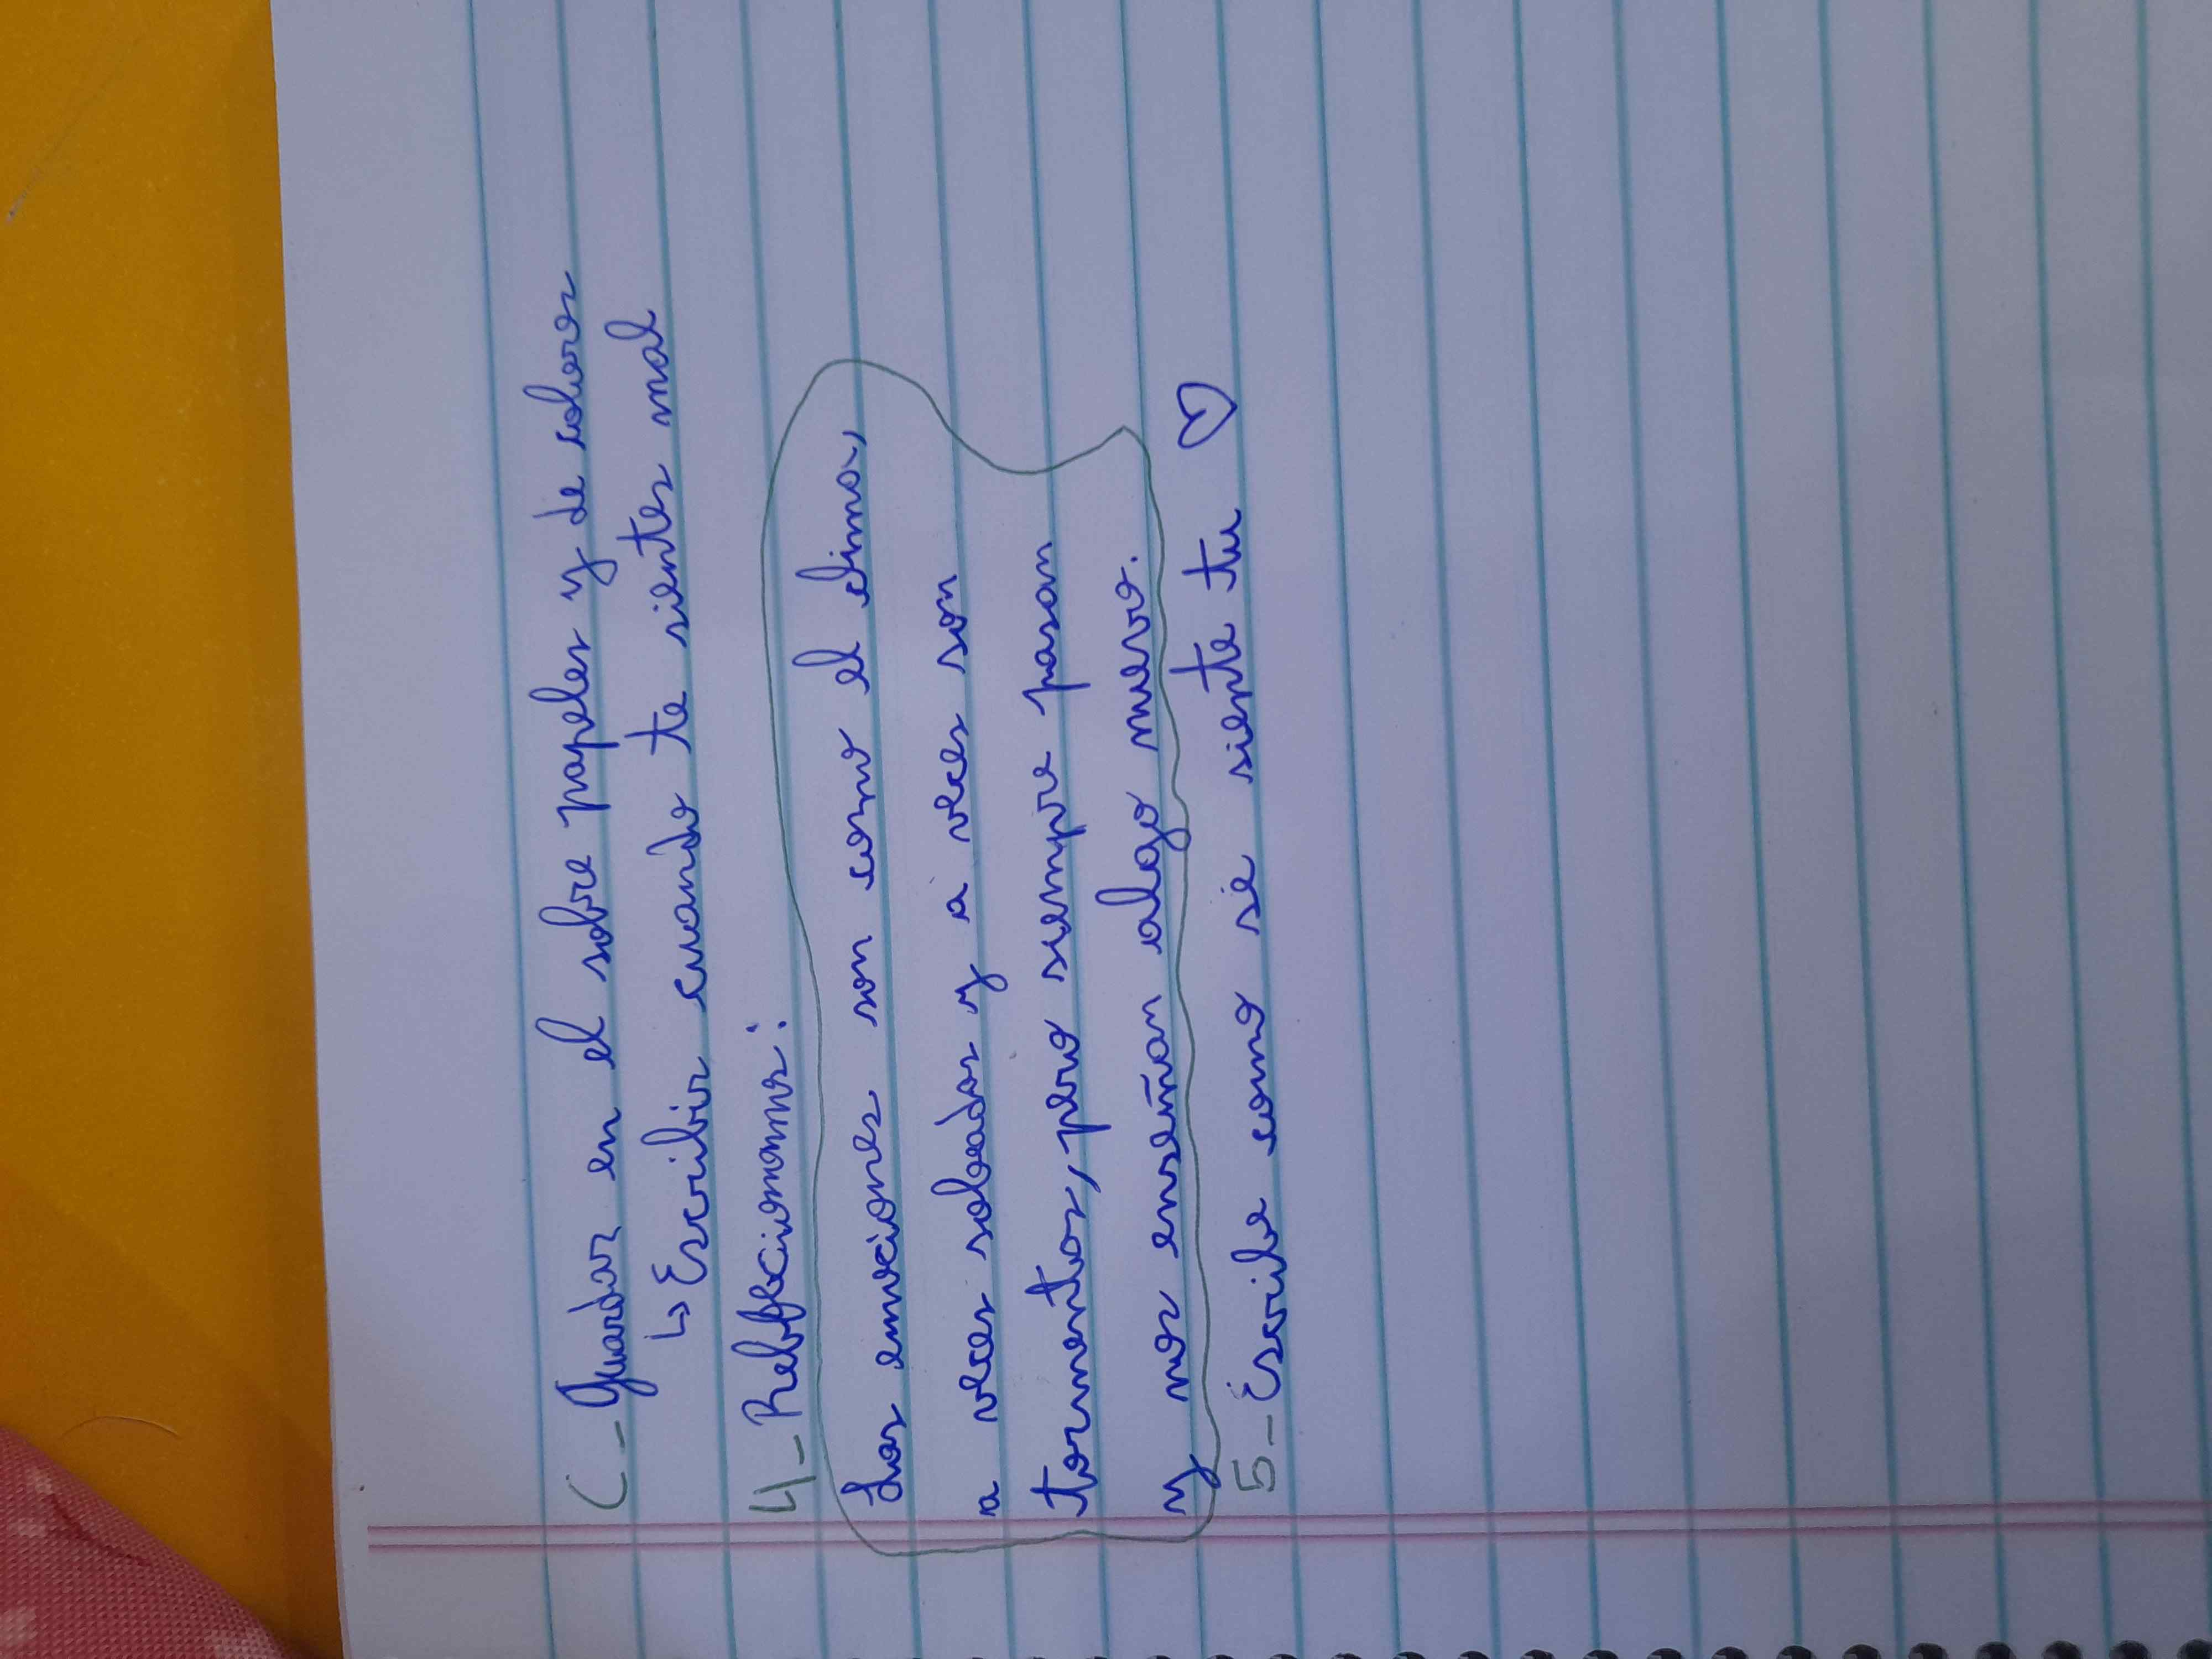 C - Guardar en el sobre papeles y de colores
↳ Escribir cuando te sientes mal
4 - Reflexionemos:
Las emociones son como el clima,
a veces soleadas y a veces son
tormentas, pero siempre pasan
y nos enseñan algo nuevo.
5 - Escribe como se siente tu ♡